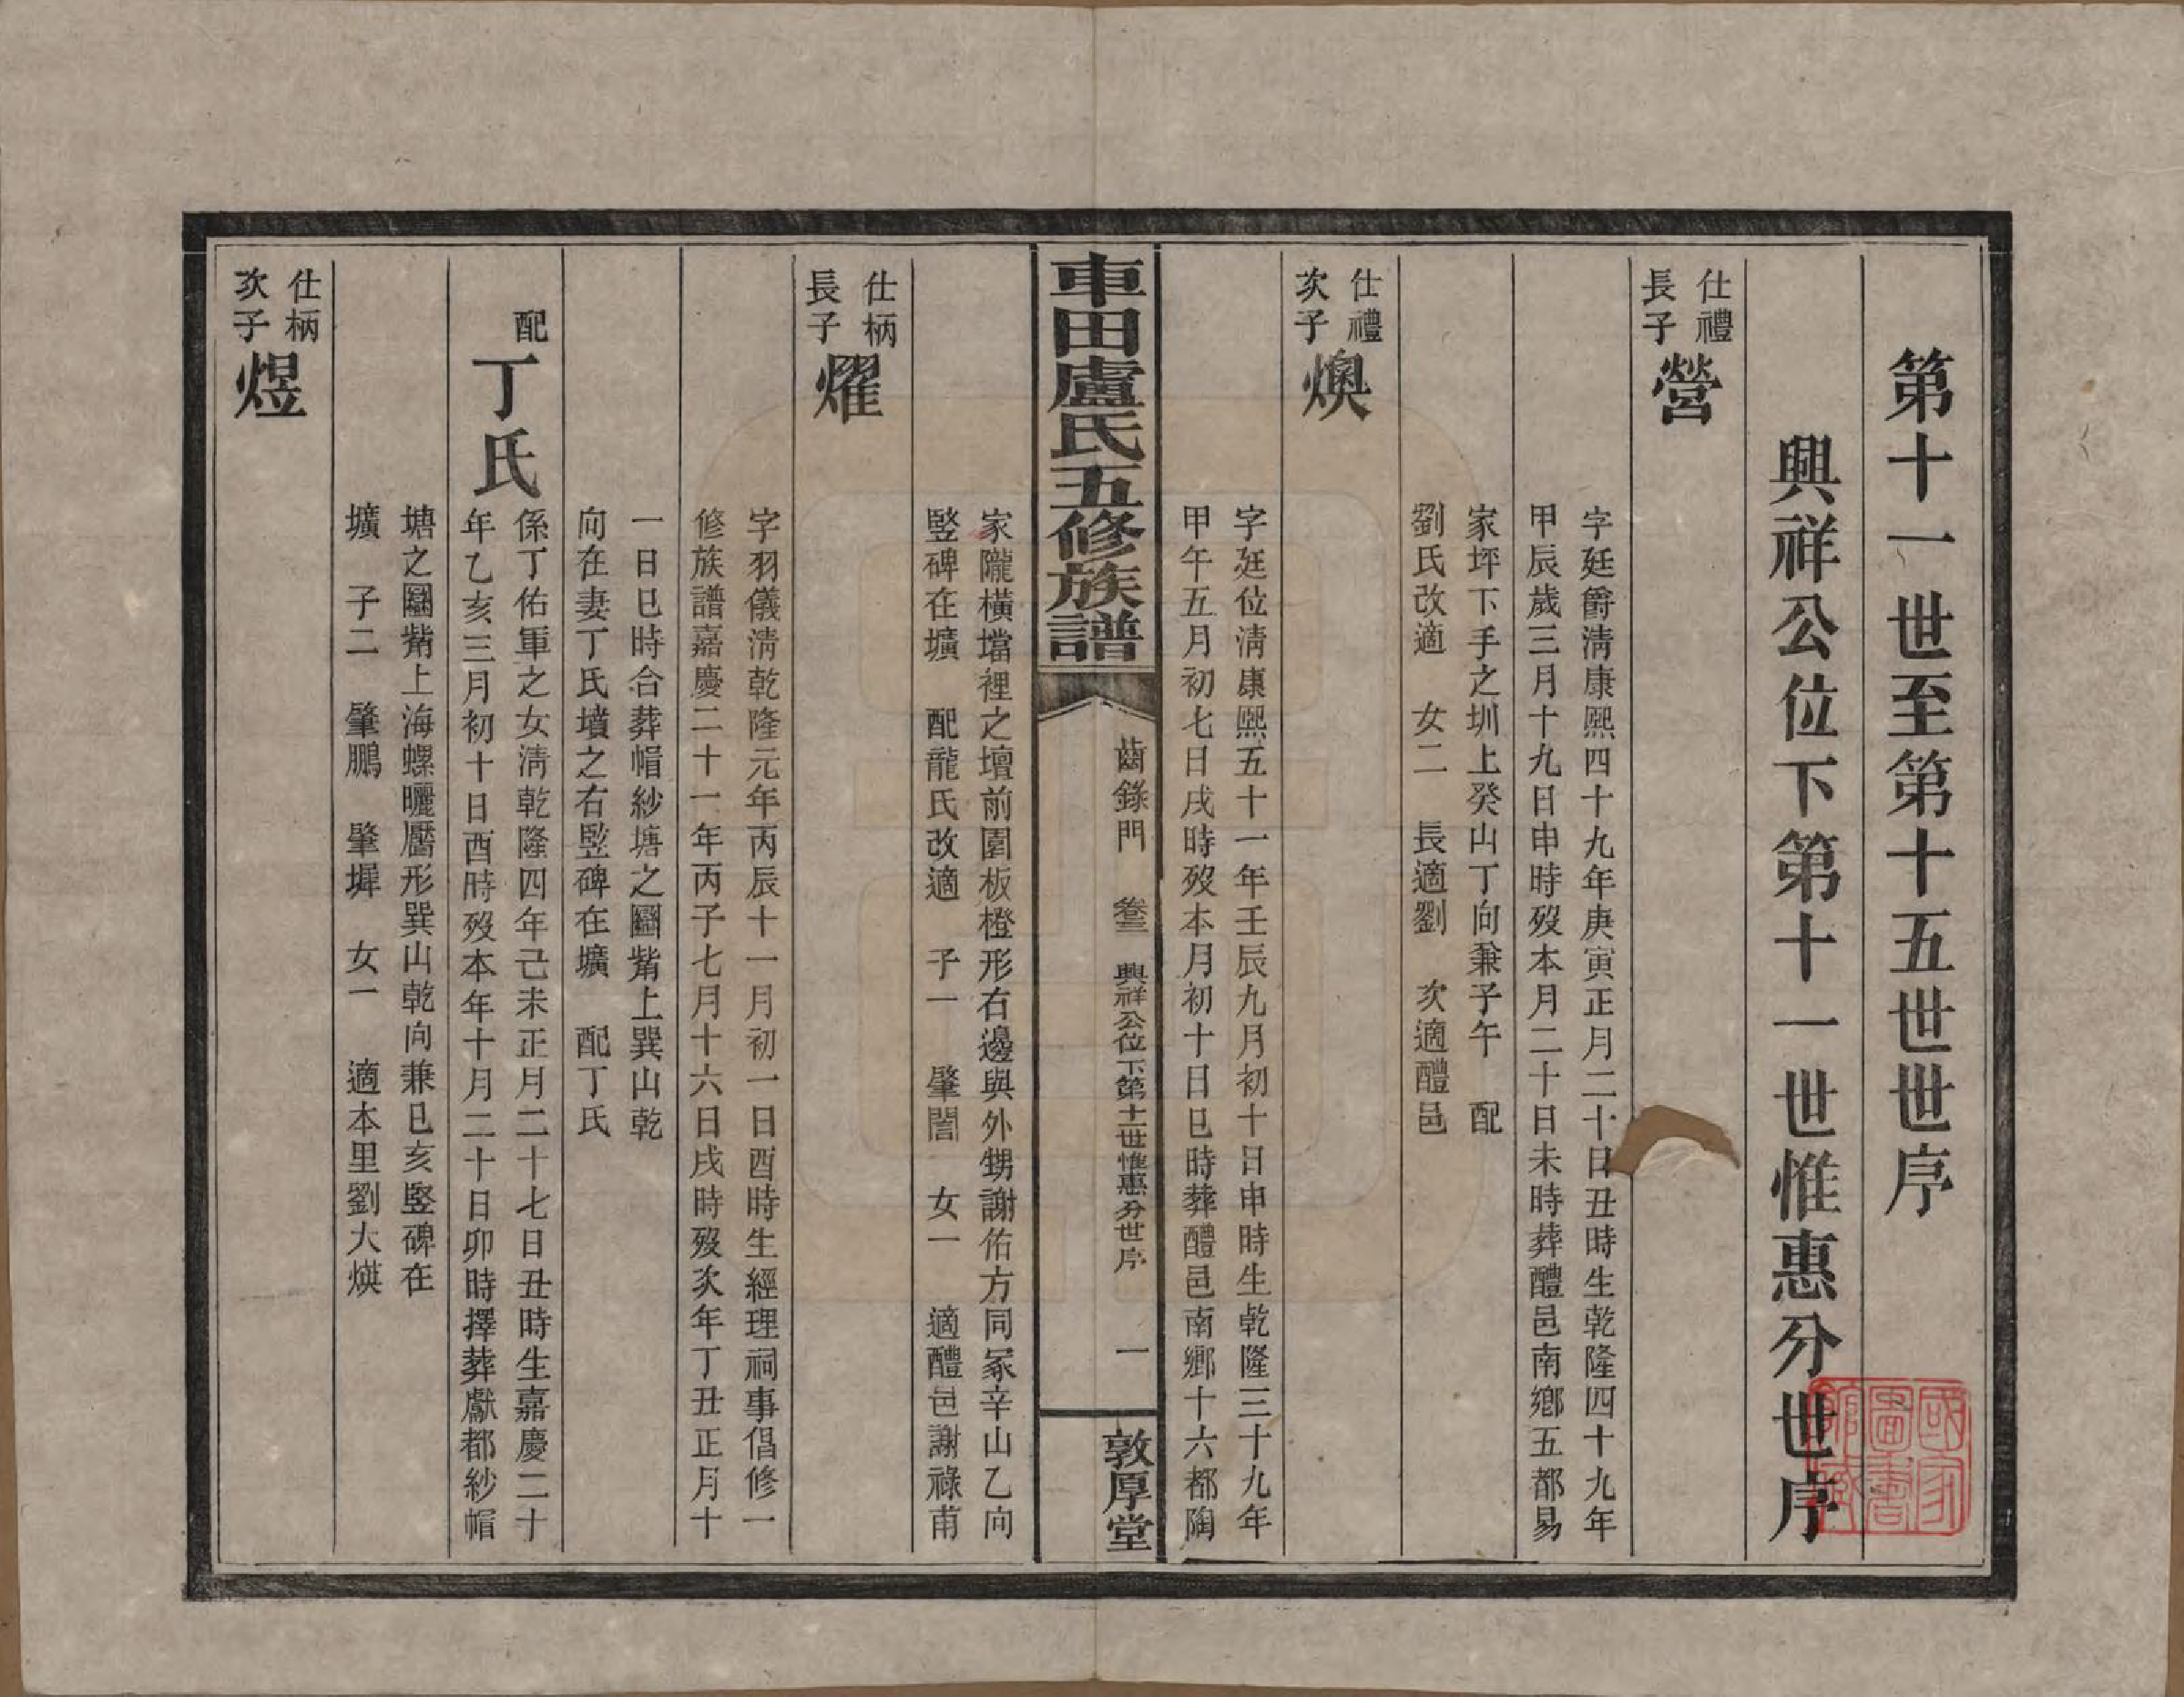 第十一世至第十五世世序
興祥公位下第十一世惟惠分世序
仕禮
長子
營
字廷爵淸康熙四十九年庚寅正月二十日丑時生乾隆四十九年
甲辰歲三月十九日申時歿本月二十日未時葬醴邑南鄉五都易
家坪下手之圳上癸山丁向兼子午　配
劉氏改適　女二　長適劉　次適醴邑
仕禮
次子
燠
字廷位淸康熙五十一年壬辰九月初十日申時生乾隆三十九年
甲午五月初七日戌時歿本月初十日巳時葬醴邑南鄉十六都陶
車田盧氏五修族譜
齒錄門　卷三　興祥公位下第十一世惟惠分世序　一
敦厚堂
家隴橫壋裡之壇前園板橙形右邊與外甥謝佑方同冢辛山乙向
竪碑在壙　配龍氏改適　子一　肇誾　女一　適醴邑謝祿甫
仕柄
長子
燿
字羽儀淸乾隆元年丙辰十一月初一日酉時生經理祠事倡修一
修族譜嘉慶二十一年丙子七月十六日戌時歿次年丁丑正月十
一日巳時合葬帽紗塘之圞觜上巽山乾
向在妻丁氏墳之右竪碑在壙　配丁氏
配
丁氏
係丁佑軍之女淸乾隆四年己未正月二十七日丑時生嘉慶二十
年乙亥三月初十日酉時歿本年十月二十日卯時擇葬獻都紗帽
塘之圞觜上海螺曬靨形巽山乾向兼巳亥竪碑在
壙　子二　肇鵬　肇墀　女一　適本里劉大煐
仕柄
次子
煜
國家
圖書
館藏